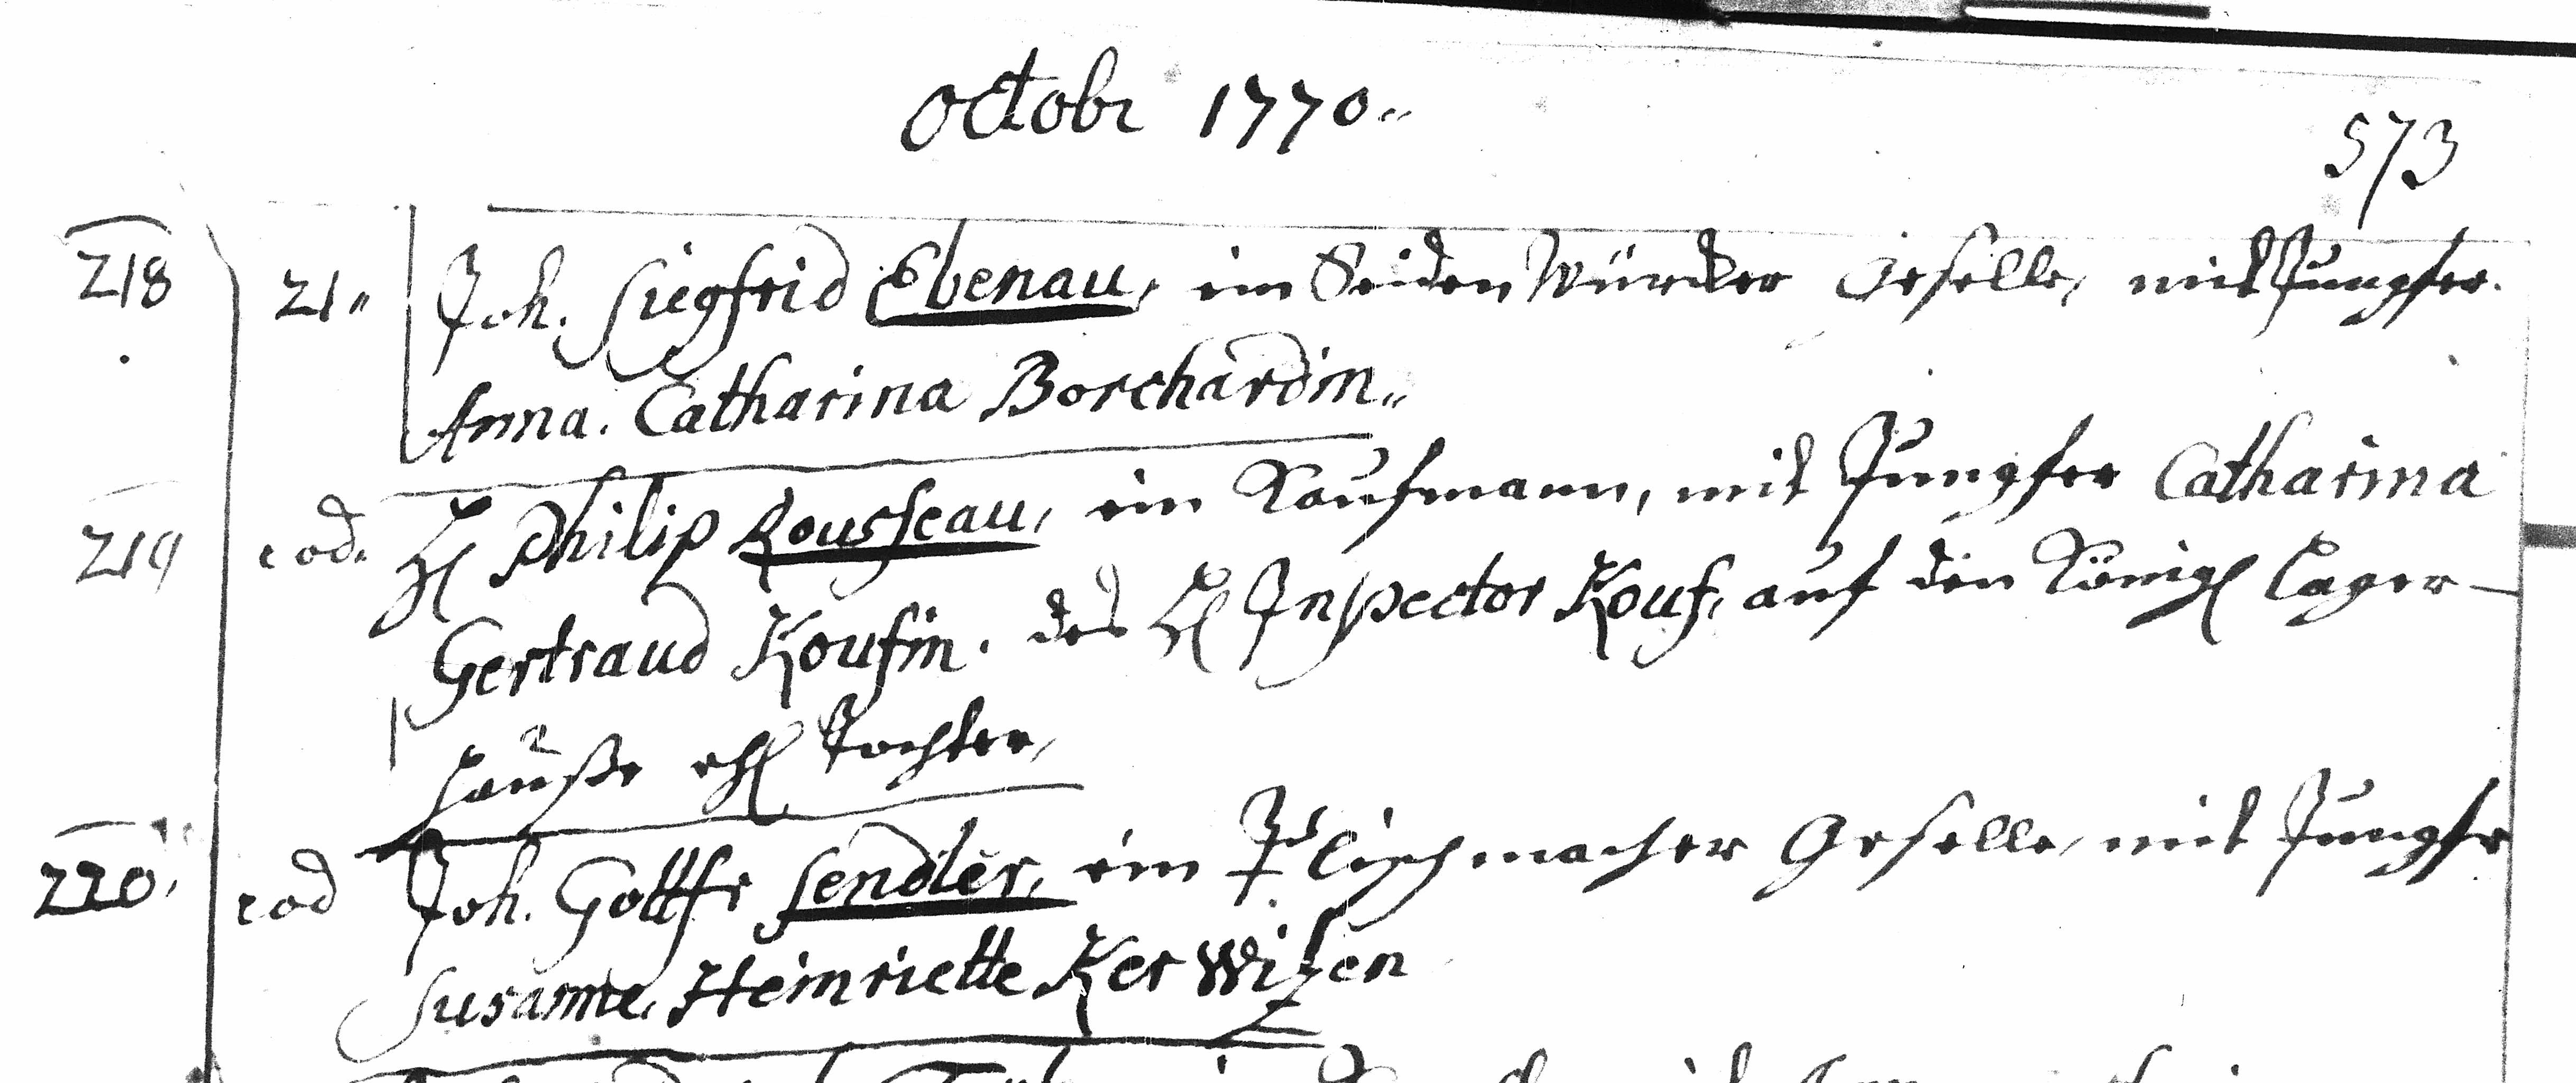 octobr 1770..
573
218 21.. Joh. Siegfrid Ebenau, ein Seiden Würcker Geselle, mit Jungfer.
Anna. Catharina Borchardin..
219 eod. H Philip Rousseau, ein Kaufmann, mit Jungfer Catharina
Gertraud Koufin. des H Inspector Kouf, auf den Königl Lager-
Hauße ehl Tochter,
220, eod Joh. Gottfr Sendler, ein Geselle, mit Jungfr
Susanne. Heinriette Kerwitzen